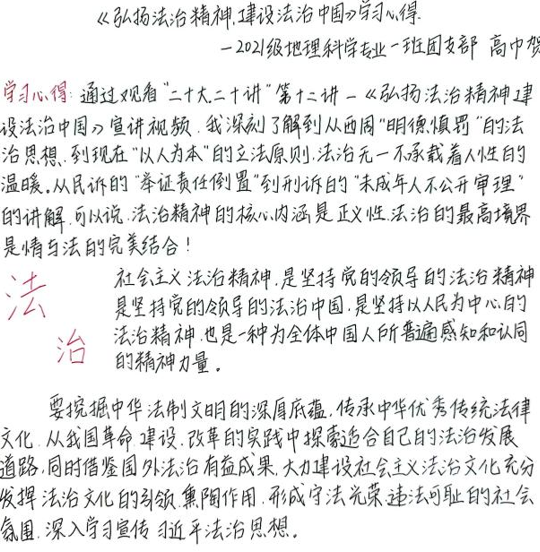 《弘扬法治精神,建设法治中国》学习心得.
—2021级地理科学专业一班团支部 高巾贺
学习心得: 通过观看“二十大二十讲”第十二讲—《弘扬法治精神建
设法治中国》宣讲视频. 我深刻了解到从西周“明德慎罚”的法
治思想、到现在“以人为本”的立法原则. 法治无一不承载着人性的
温暖. 从民诉的“举证责任倒置”到刑诉的“未成年人不公开审理”
的讲解. 可以说. 法治精神的核心内涵是正义性. 法治的最高境界
是情与法的完美结合!
法
治
社会主义法治精神, 是坚持党的领导的法治精神
是坚持党的领导的法治中国, 是坚持以人民为中心的
法治精神. 也是一种为全体中国人所普遍感知和认同
的精神力量。
要挖掘中华法制文明的深厚底蕴, 传承中华优秀传统法律
文化. 从我国革命 建设. 改革的实践中探索适合自己的法治发展
道路, 同时借鉴国外法治有益成果. 大力建设社会主义法治文化充分
发挥法治文化的引领. 熏陶作用. 形成守法光荣 违法可耻的社会
氛围. 深入学习宣传习近平法治思想。